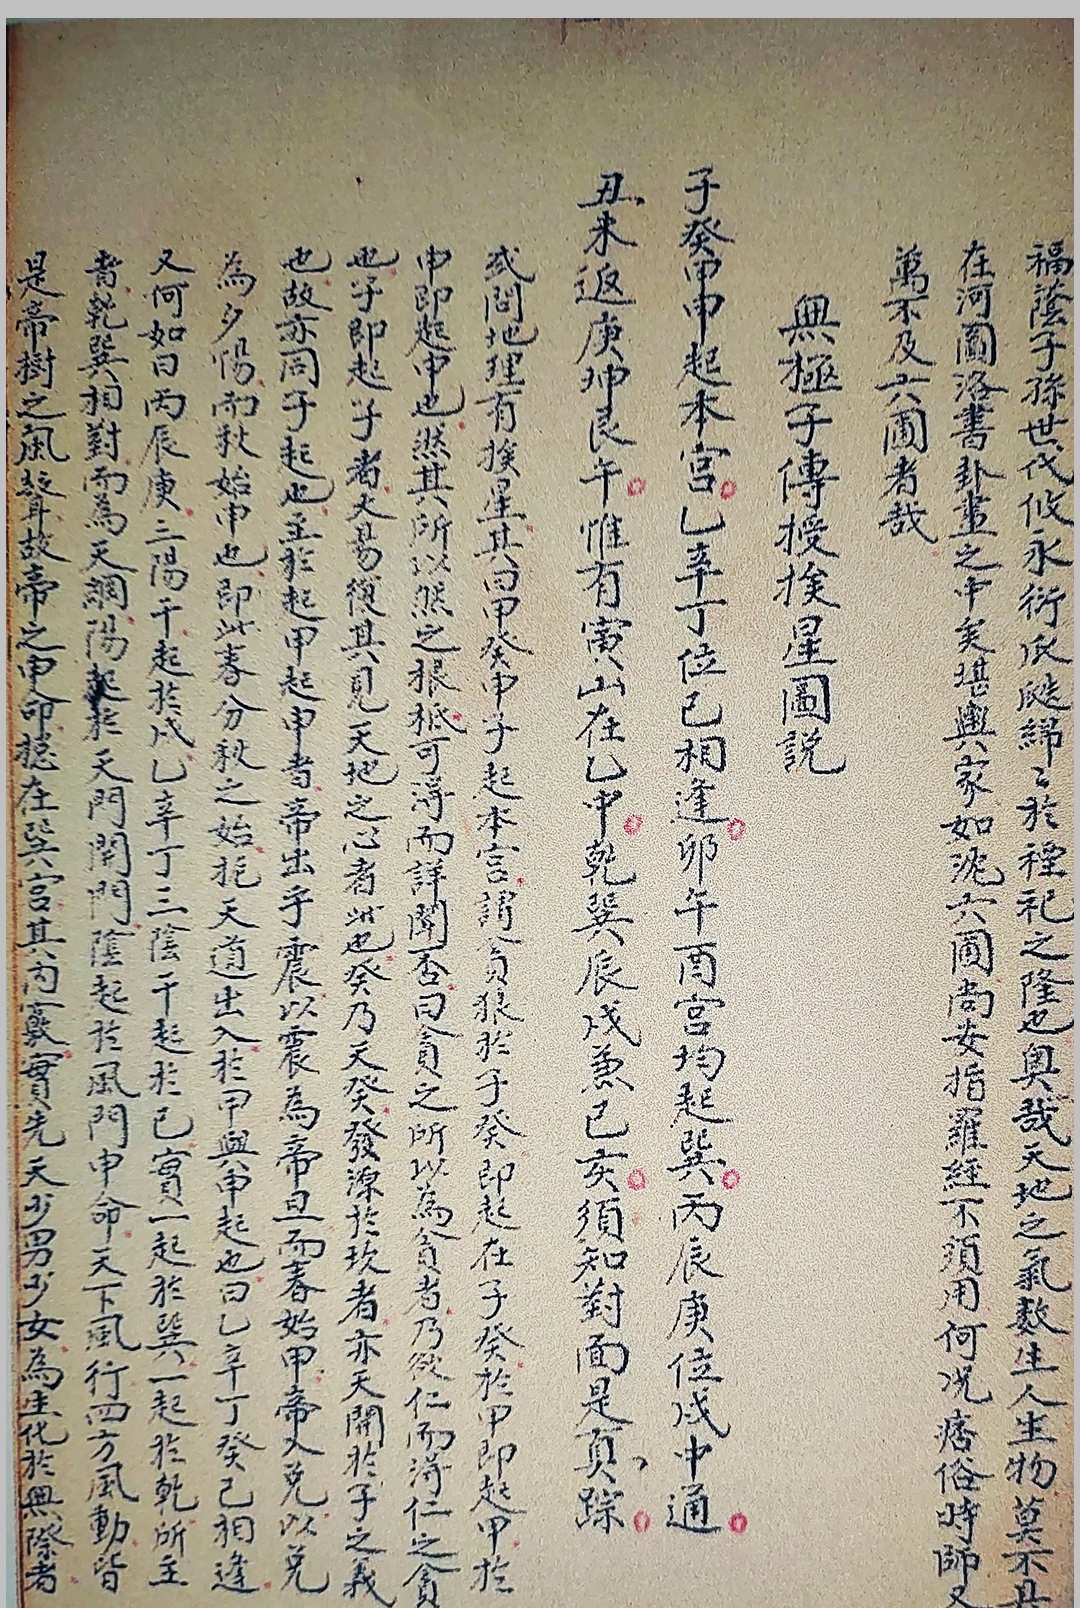 福蔭子孫世代攸永衍瓜瓞綿〻於禋祀之隆也奥哉天地之氣数生人生物莫不具
在河圖洛書卦畫之中矣堪輿家如沈六圃尚妄指羅經不須用何况痞俗時師又
萬不及六圃者哉
無極子傳授挨星圖説
子癸甲申起本宫乙辛丁位巳相逢卯午酉宫均起巽丙辰庚位戌中通
丑未返庚坤艮午惟有寅山在乙中乾巽辰戌兼巳亥須知對面是真踪
或問地理有挨星其曰甲癸申子起本宫謂貪狼於子癸即起在子癸於甲即起甲於
申即起申也然其所以然之根柢可淂而詳聞否曰貪之所以為貪者乃欲仁而淂仁之貪
也子即起子者大易復其見天地之心者此也癸乃天癸發源於坎者亦天開於子之義
也故亦同子起也至於起甲起申者帝出乎震以震為帝旦而春始甲帝入兑以兑
為夕惕而秋始申也即此春分秋之始挓天道出入於甲與申起也曰乙辛丁癸己相逢
又何如曰丙辰庚三陽干起於戌乙辛丁三陰干起於巳實一起於巽一起於乾所主
者乾巽相對而為天綱陽起於天門開門陰起於風門申命天下風行四方風動皆
是帝樹之風聲故帝之申命揔在巽宫其内藏實先天少男少女為生化於無際者